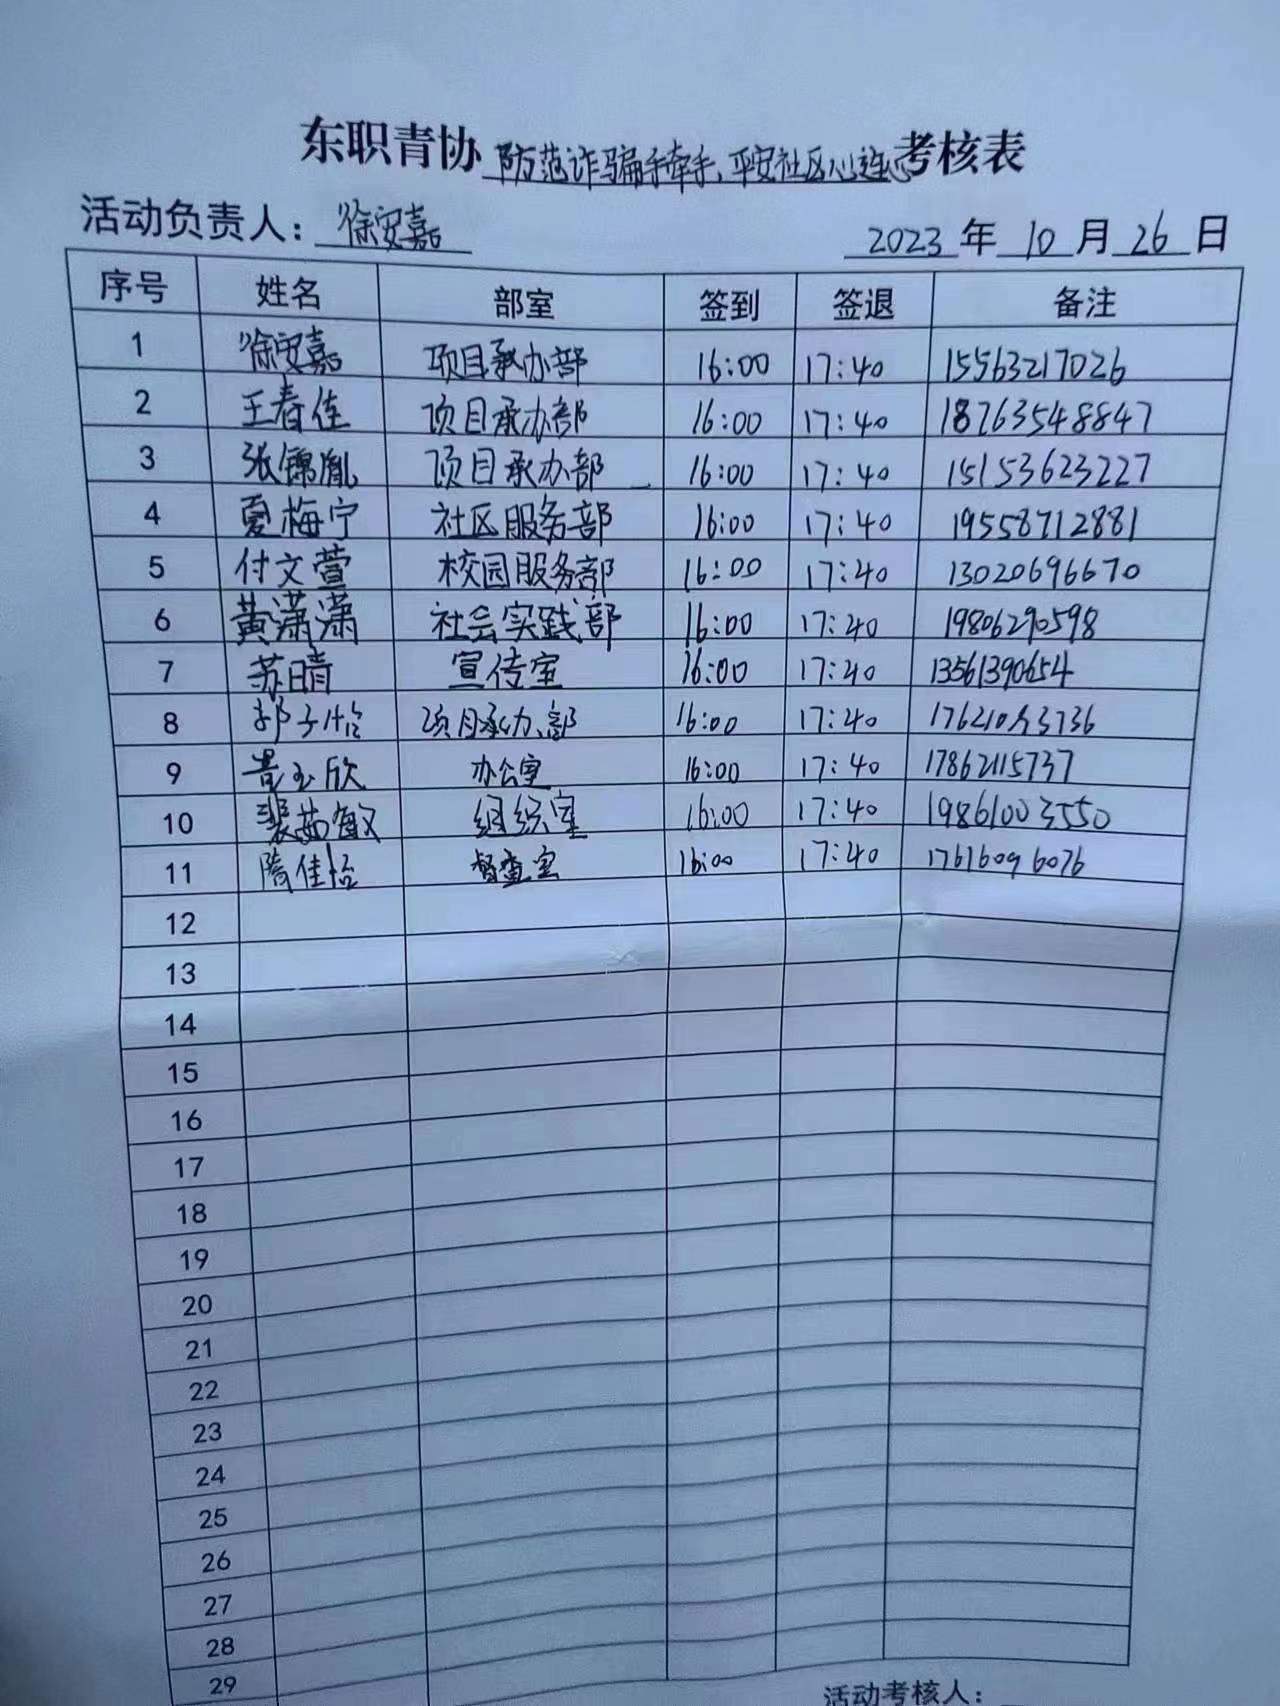 东职青协 防范诈骗手牵手、平安社区心连心 考核表
活动负责人：徐安嘉 2023 年 10 月 26 日
序号 姓名 部室 签到 签退 备注
1 徐安嘉 项目承办部 16:00 17:40 15563217026
2 王春佳 项目承办部 16:00 17:40 18763548847
3 张锦胤 项目承办部 16:00 17:40 15153623227
4 夏梅宁 社区服务部 16:00 17:40 19558712881
5 付文萱 校园服务部 16:00 17:40 13020696670
6 黄潇潇 社会实践部 16:00 17:40 19806290598
7 苏晴 宣传室 16:00 17:40 13561390654
8 子怡 项目承办部 16:00 17:40
9 玉欣 办公室 16:00 17:40 17862115737
10 裴茹敏 组织室 16:00 17:40 19861003550
11 隋佳怡 督查室 16:00 17:40 17616096076
12
13
14
15
16
17
18
19
20
21
22
23
24
25
26
27
28
29
活动考核人：